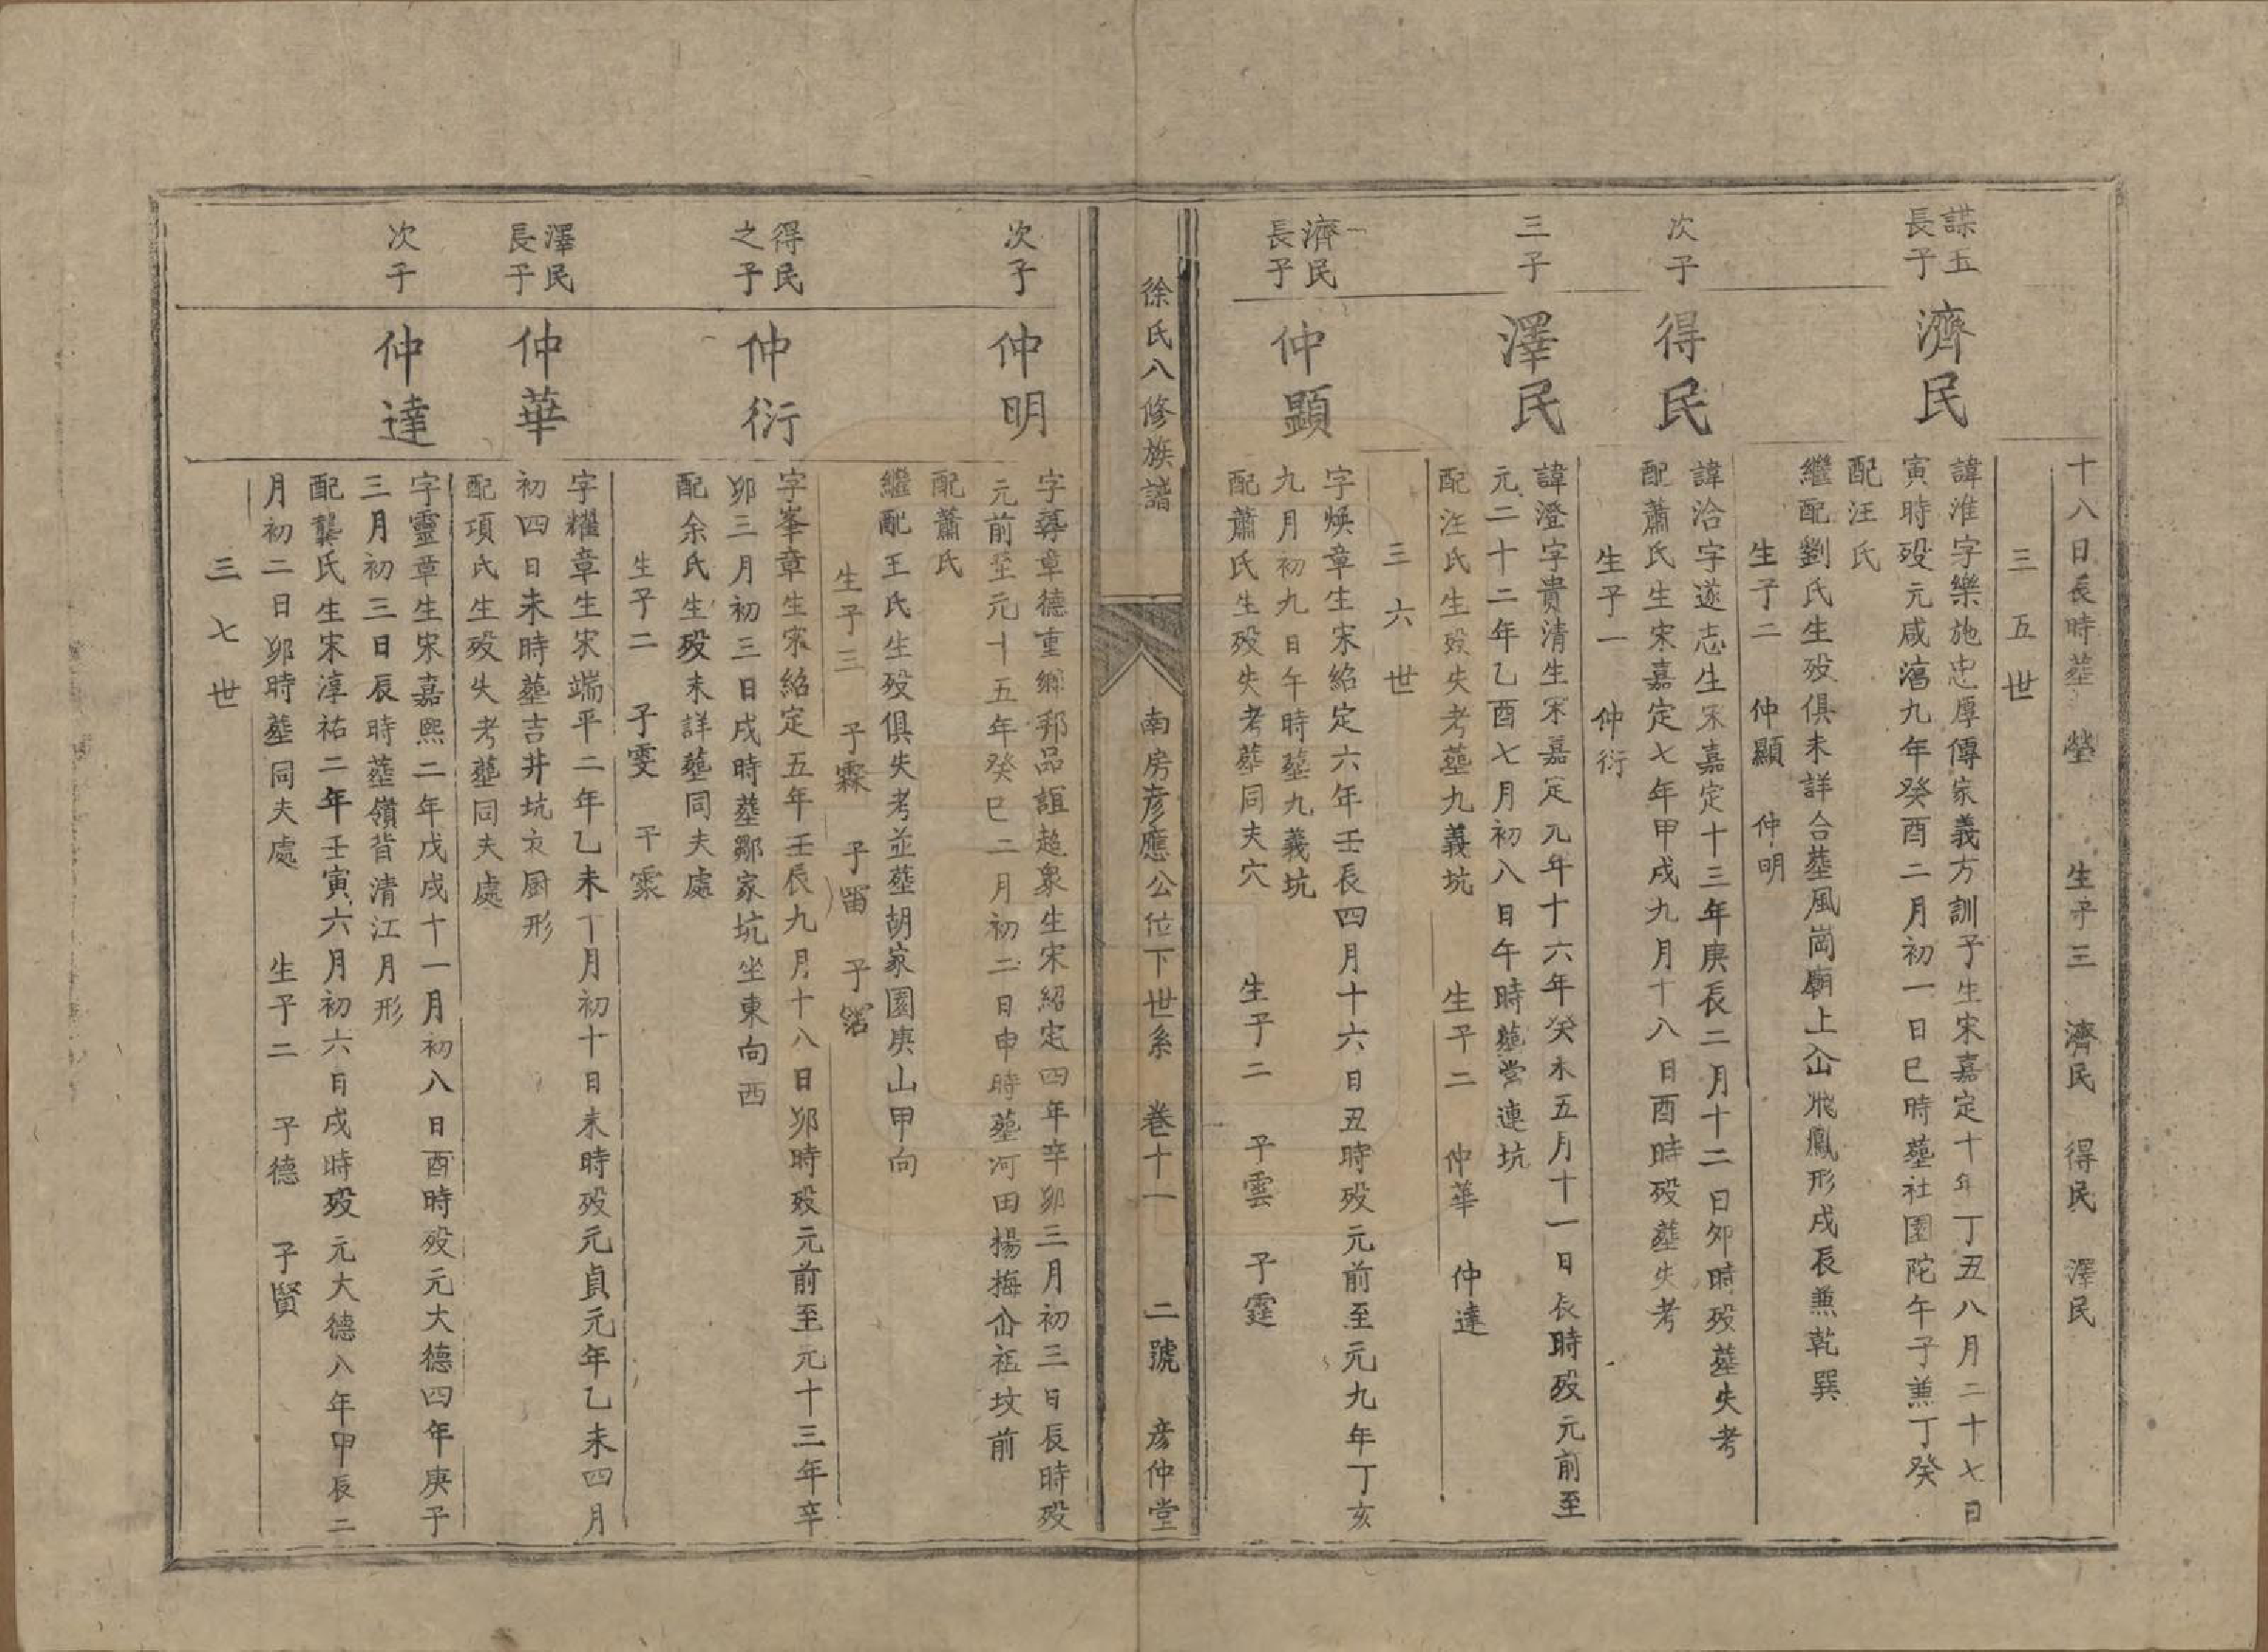 十八日辰時塟 塋 生子三 濟民 得民 澤民
三五世
謀五長子
濟民
諱淮字樂施忠厚傳家義方訓子生宋嘉定十年丁丑八月二十七日
寅時殁元咸淳九年癸酉二月初一日巳時塟社園陀午子兼丁癸
配汪氏
繼配劉氏生殁俱未詳合塟風崗廟上仚飛鳳形戌辰兼乾巽
生子二 仲顯 仲明
次子
得民
諱洽字遂志生宋嘉定十三年庚辰二月十二日夘時殁塟失考
配蕭氏生宋嘉定七年甲戌九月十八日酉時殁塟失考
生子一 仲衍
三子
澤民
諱澄字貴清生宋嘉定元年十六年癸未五月十一日辰時殁元前至
元二十二年乙酉七月初八日午時塟堂連坑
配汪氏生殁失考塟九義坑 生子二 仲華 仲達
三六世
濟民長子
仲顯
字煥章生宋紹定六年壬辰四月十六日丑時殁元前至元九年丁亥
九月初九日午時塟九義坑
配蕭氏生殁失考塟同夫穴 生子二 子雲 子霆
徐氏八修族譜 南房彦應公位下世系 卷十一 二號 彦仲堂
次子
仲明
字尊章德重鄉邦品誼超衆生宋紹定四年辛夘三月初三日辰時殁
元前至元十五年癸巳二月初二日申時塟河田楊梅仚祖坟前
配蕭氏
繼配王氏生殁俱失考並塟胡家園庚山甲向
生子三 子霖 子霤 子
得民之子
仲衍
字峯章生宋紹定五年壬辰九月十八日夘時殁元前至元十三年辛
夘三月初三日戌時塟鄒家坑坐東向西
配余氏生殁未詳塟同夫處
生子二 子雯 子霂
澤民長子
仲華
字耀章生宋端平二年乙未十月初十日未時殁元貞元年乙未四月
初四日未時塟吉井坑亥厨形
配項氏生殁失考塟同夫處
次子
仲達
字靈章生宋嘉熙二年戊戌十一月初八日酉時殁元大德四年庚子
三月初三日辰時塟嶺背清江月形
配龔氏生宋淳祐二年壬寅六月初六日戌時殁元大德八年甲辰二
月初二日夘時塟同夫處 生子二 子德 子賢
三七世